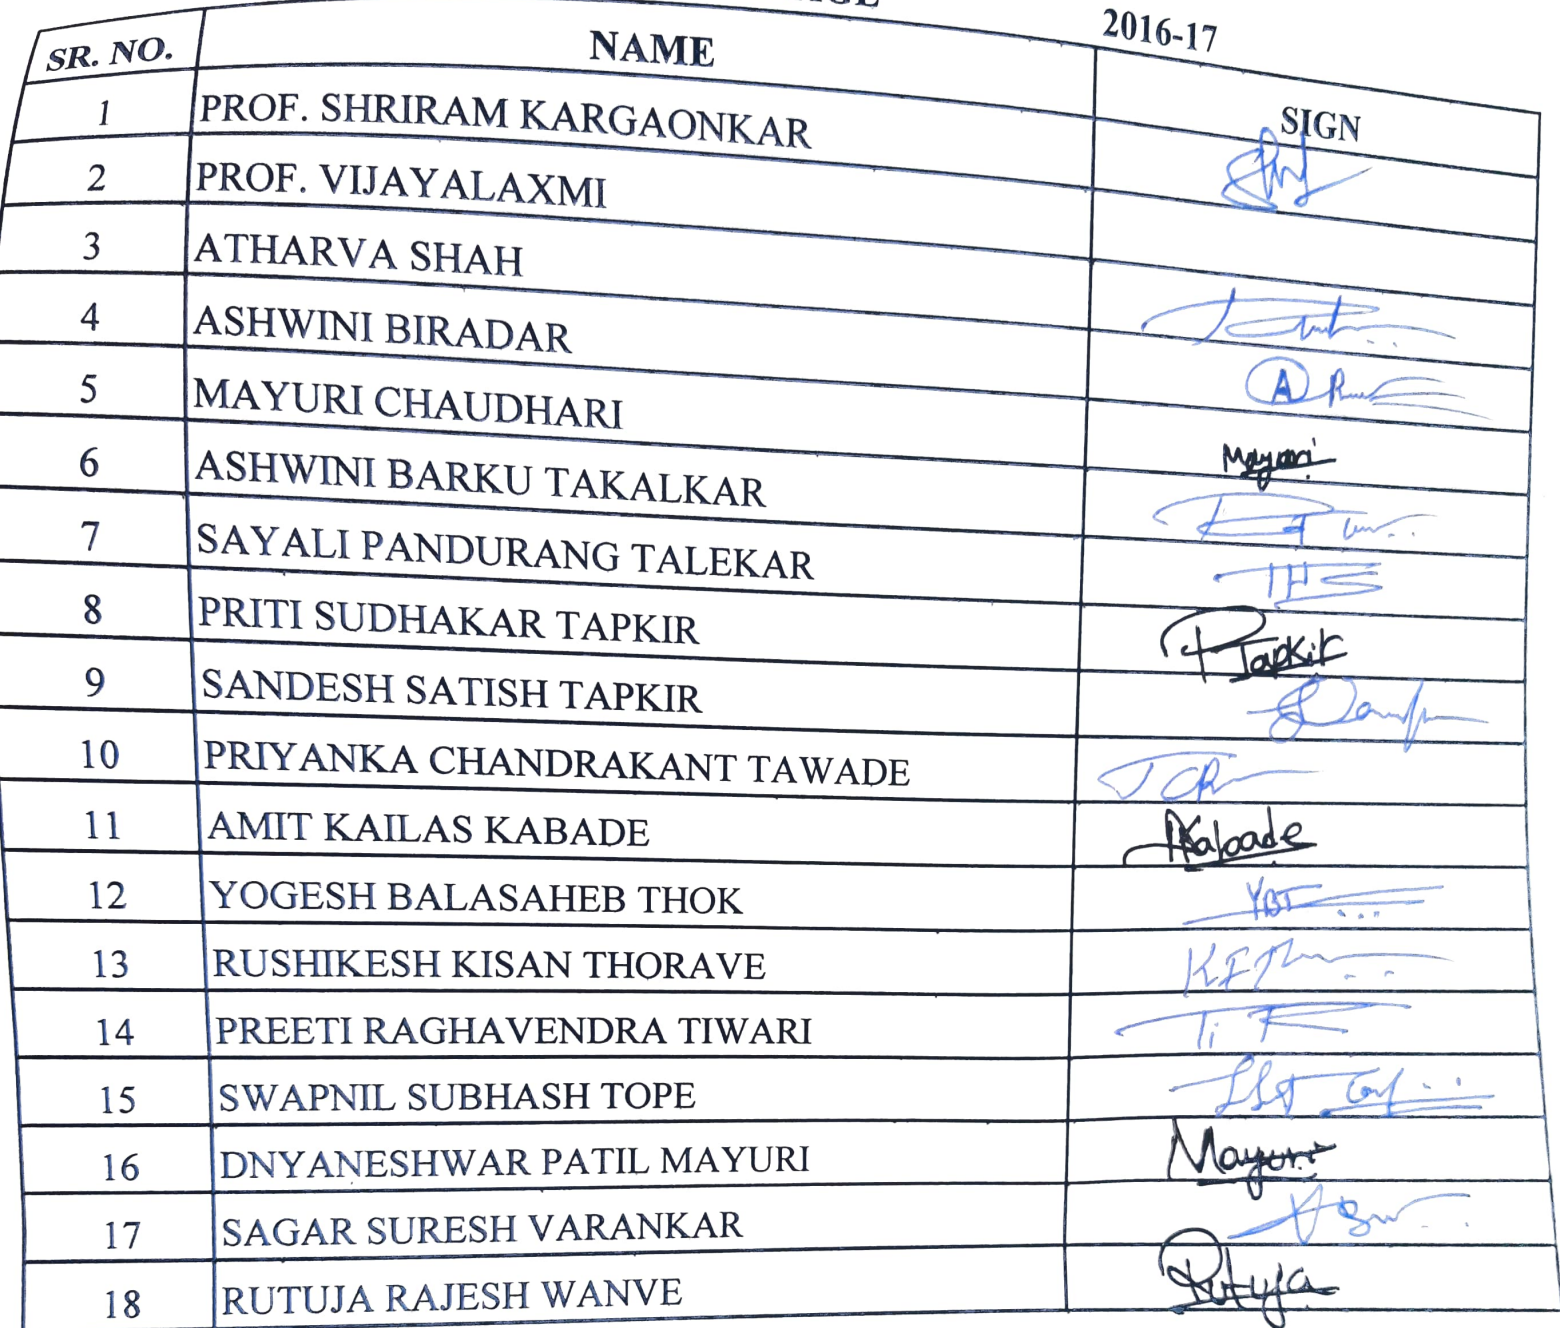 2016-17
SR. NO. NAME SIGN
1 PROF. SHRIRAM KARGAONKAR
2 PROF. VIJAYALAXMI
3 ATHARVA SHAH
4 ASHWINI BIRADAR A
5 MAYURI CHAUDHARI Mayuri
6 ASHWINI BARKU TAKALKAR
7 SAYALI PANDURANG TALEKAR
8 PRITI SUDHAKAR TAPKIR PTapkir
9 SANDESH SATISH TAPKIR
10 PRIYANKA CHANDRAKANT TAWADE
11 AMIT KAILAS KABADE AKabade
12 YOGESH BALASAHEB THOK YBT
13 RUSHIKESH KISAN THORAVE
14 PREETI RAGHAVENDRA TIWARI
15 SWAPNIL SUBHASH TOPE
16 DNYANESHWAR PATIL MAYURI Mayuri
17 SAGAR SURESH VARANKAR
18 RUTUJA RAJESH WANVE Rutuja